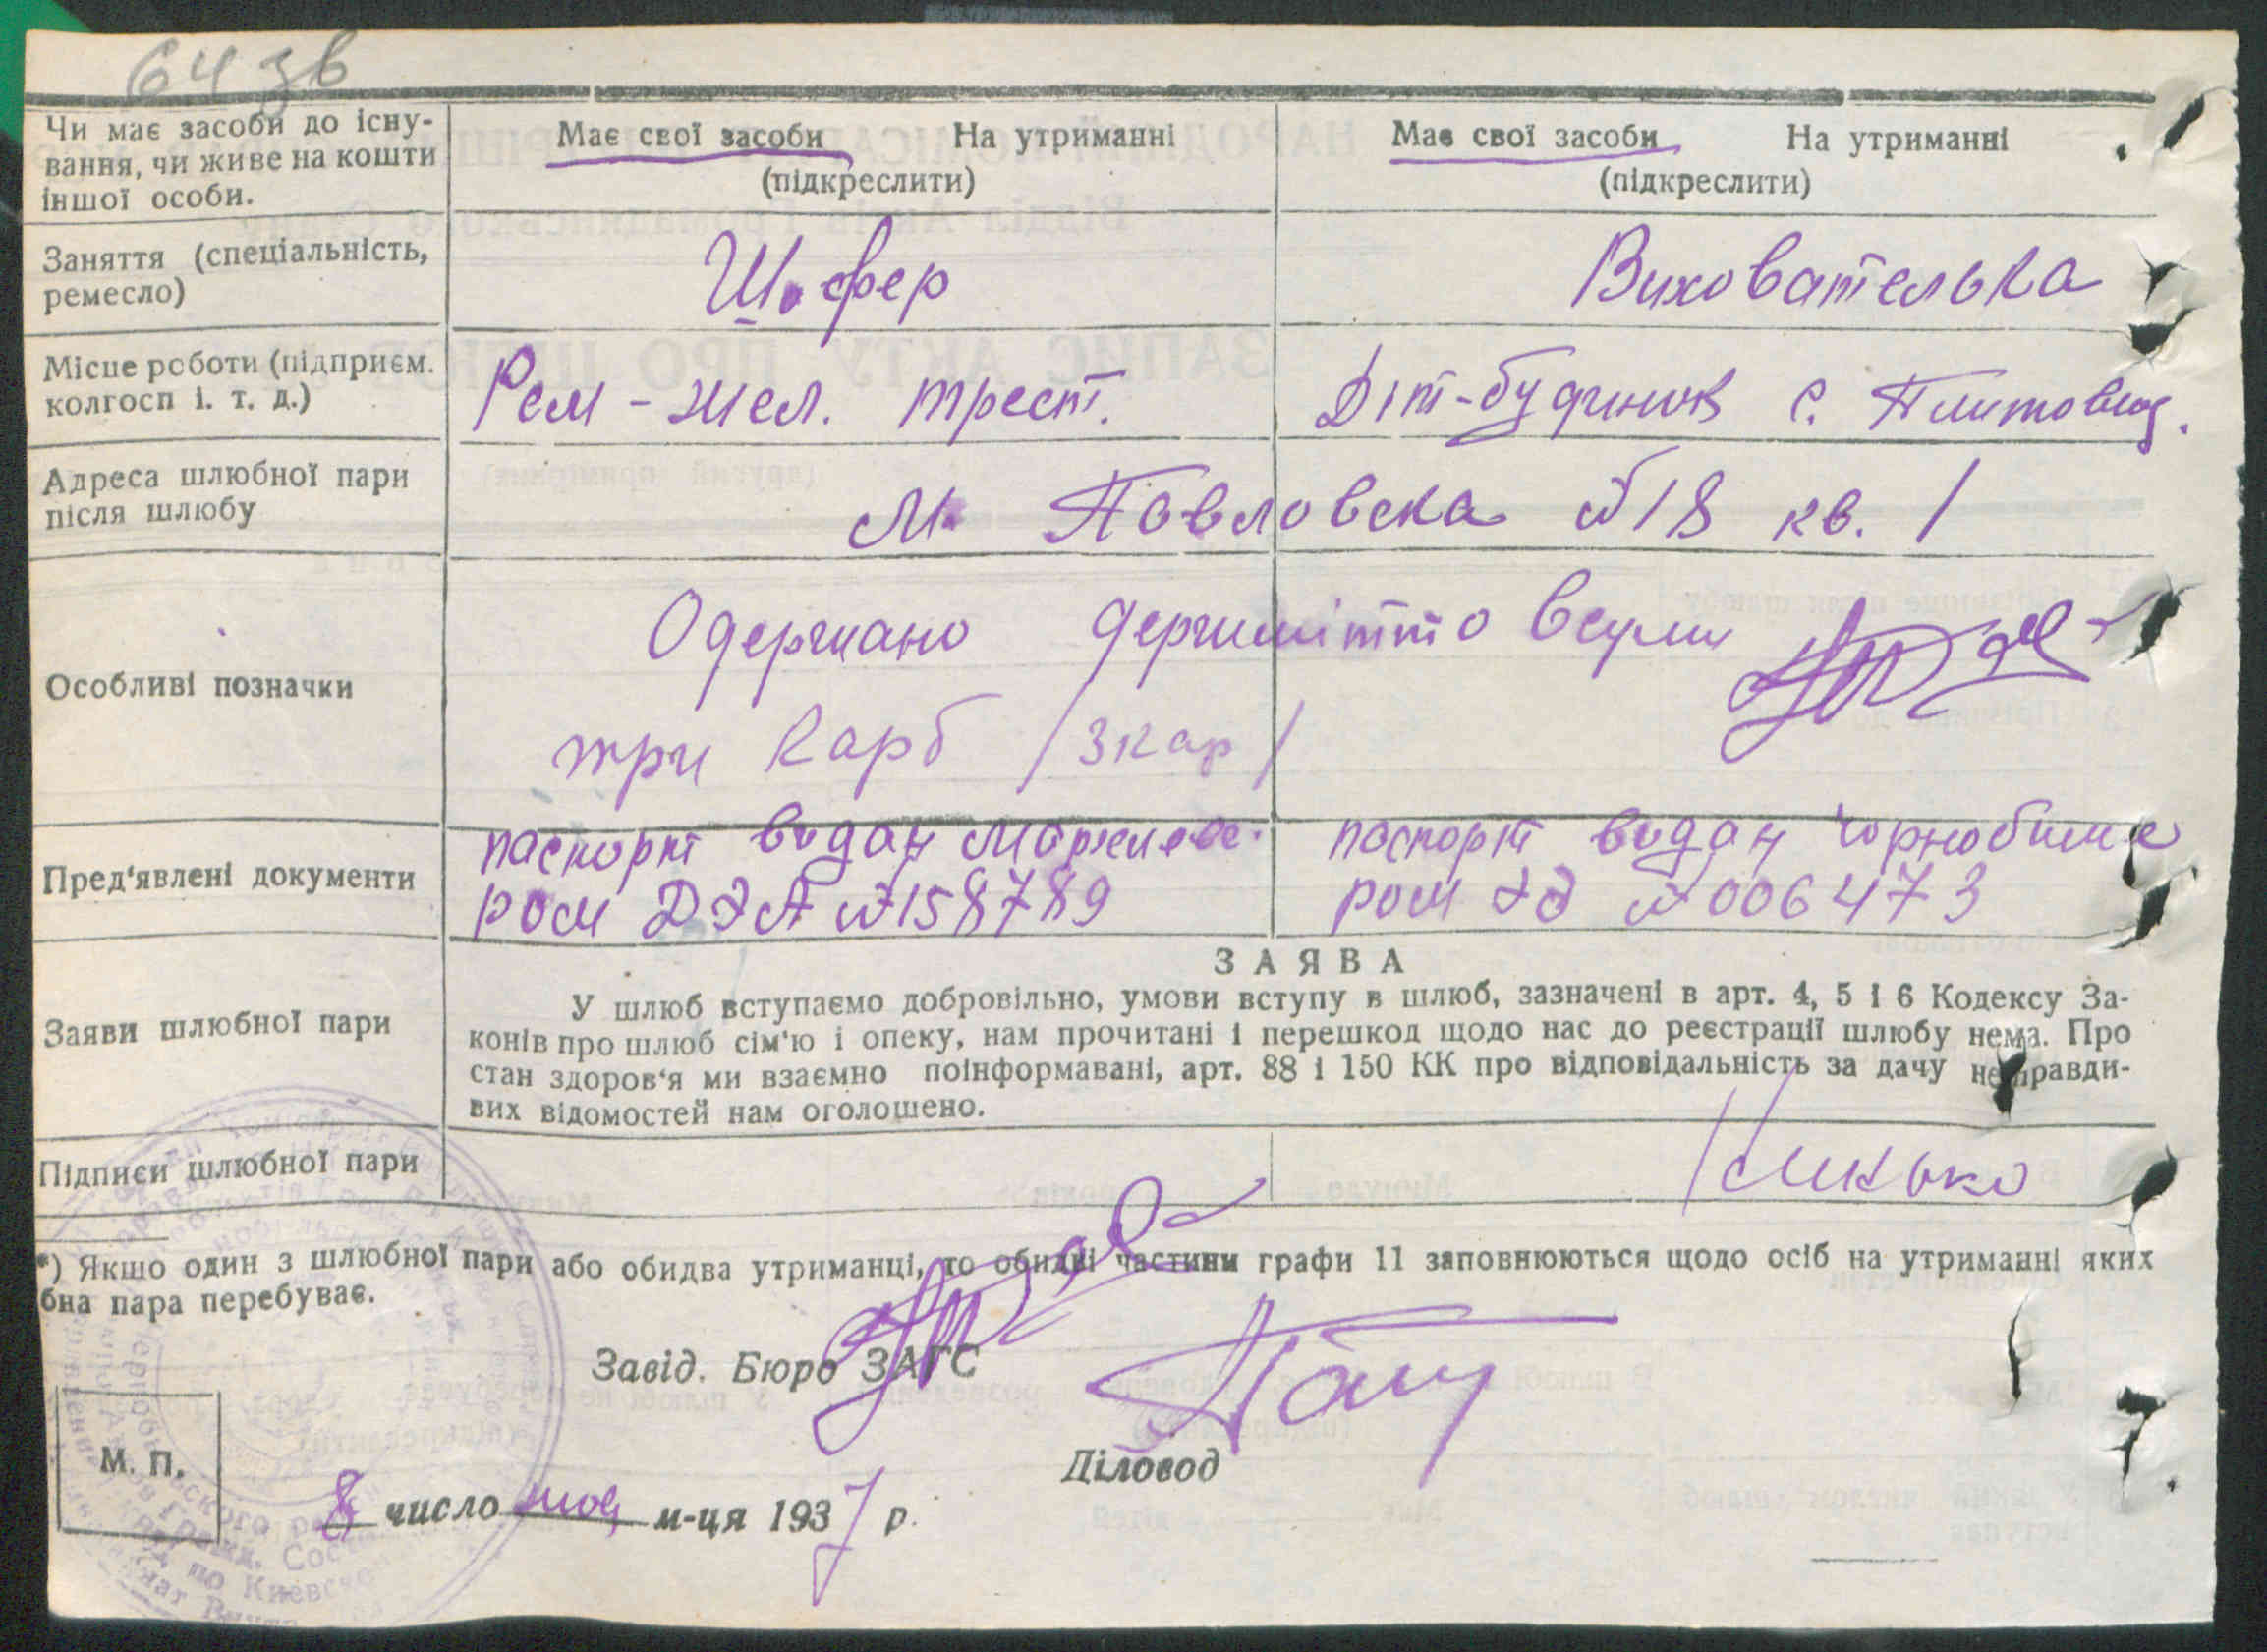 64 зв
Чи має засоби до існу-
вання, чи живе на кошти
іншої особи.
Має свої засоби На утриманні
(підкреслити)
Має свої засоби На утриманні
(підкреслити)
Заняття (спеціальність,
ремесло)
Шофер
Вихователька
Місце роботи (підприєм.
колгосп і. т. д.)
Рем - жел. трест.
Діт-будинок с.
Адреса шлюбної пари
після шлюбу
М. Павловска №18 кв. 1
Особливі позначки
Одержано держмитто
три карб /3 кар/
Пред'явлені документи
паспорт видан
ром ДЭА №158789
паспорт видан Чорнобильс
ром №006473
Заяви шлюбної пари
ЗАЯВА
У шлюб вступаємо добровільно, умови вступу в шлюб, зазначені в арт. 4, 5 і 6 Кодексу За-
конів про шлюб сім'ю і опеку, нам прочитані і перешкод щодо нас до реєстрації шлюбу нема. Про
стан здоров'я ми взаємно поінформавані, арт. 88 і 150 КК про відповідальність за дачу неправди-
вих відомостей нам оголошено.
Підписи шлюбної пари
*) Якщо один з шлюбної пари або обидва утриманці, то обидві частини графи 11 заповнюються щодо осіб на утриманні яких
бна пара перебуває.
Завід. Бюро ЗАГС
Діловод
М. П.
8 число мая м-ця 1937 р.